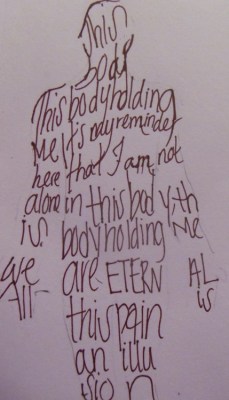 This
body
This body holding
me It is my reminder
here that I am not
alone in this body, th
is body holding Me
We are ETERN AL
All this pain is
an illu
sion